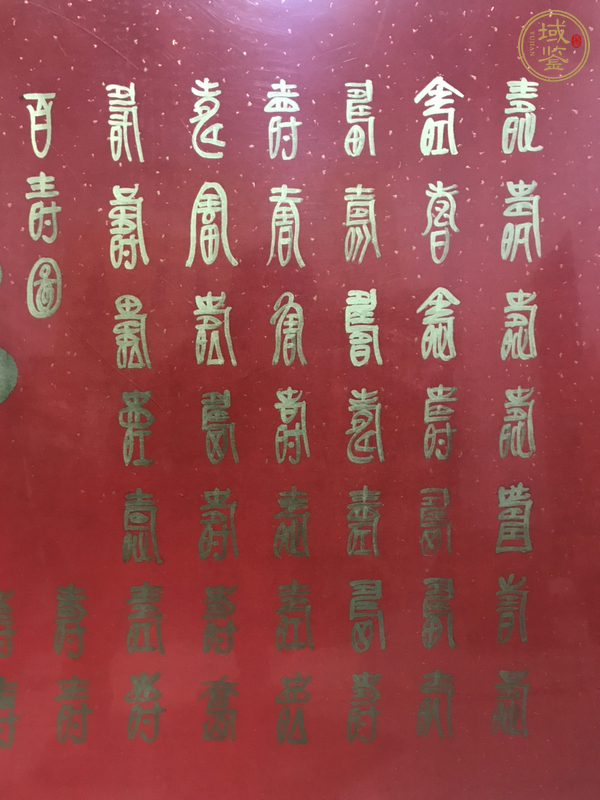 壽壽壽壽壽壽壽
壽壽壽壽壽壽壽
壽壽壽壽壽壽壽
壽壽壽壽壽壽壽
壽壽壽壽壽壽壽
壽壽壽壽壽壽壽
壽壽
壽壽
百壽圖
域鉴
YUJIAN